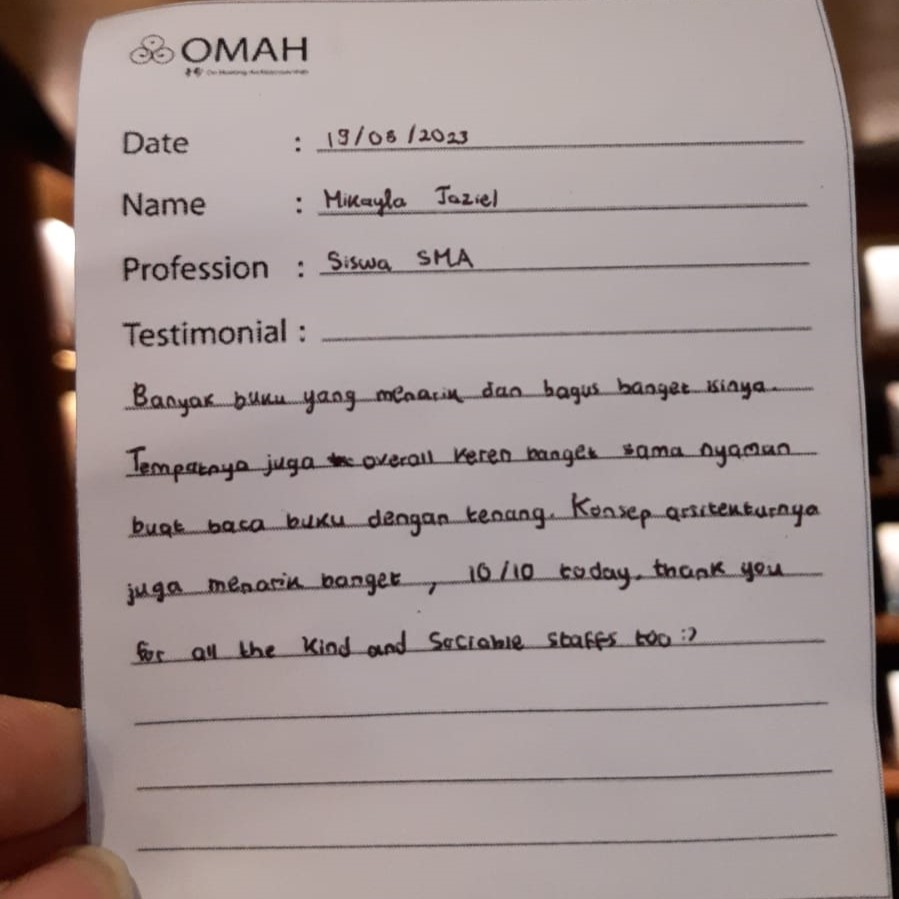 OMAH
Date : 19/08/2023
Name : Mikayla Jaziel
Profession : Siswa SMA
Testimonial :
Banyak buku yang menarik dan bagus banget isinya.
Tempatnya juga overall keren banget sama nyaman
buat baca buku dengan tenang. Konsep arsitekturnya
juga menarik banget, 10/10 today. thank you
for all the kind and sociable staffs too :)